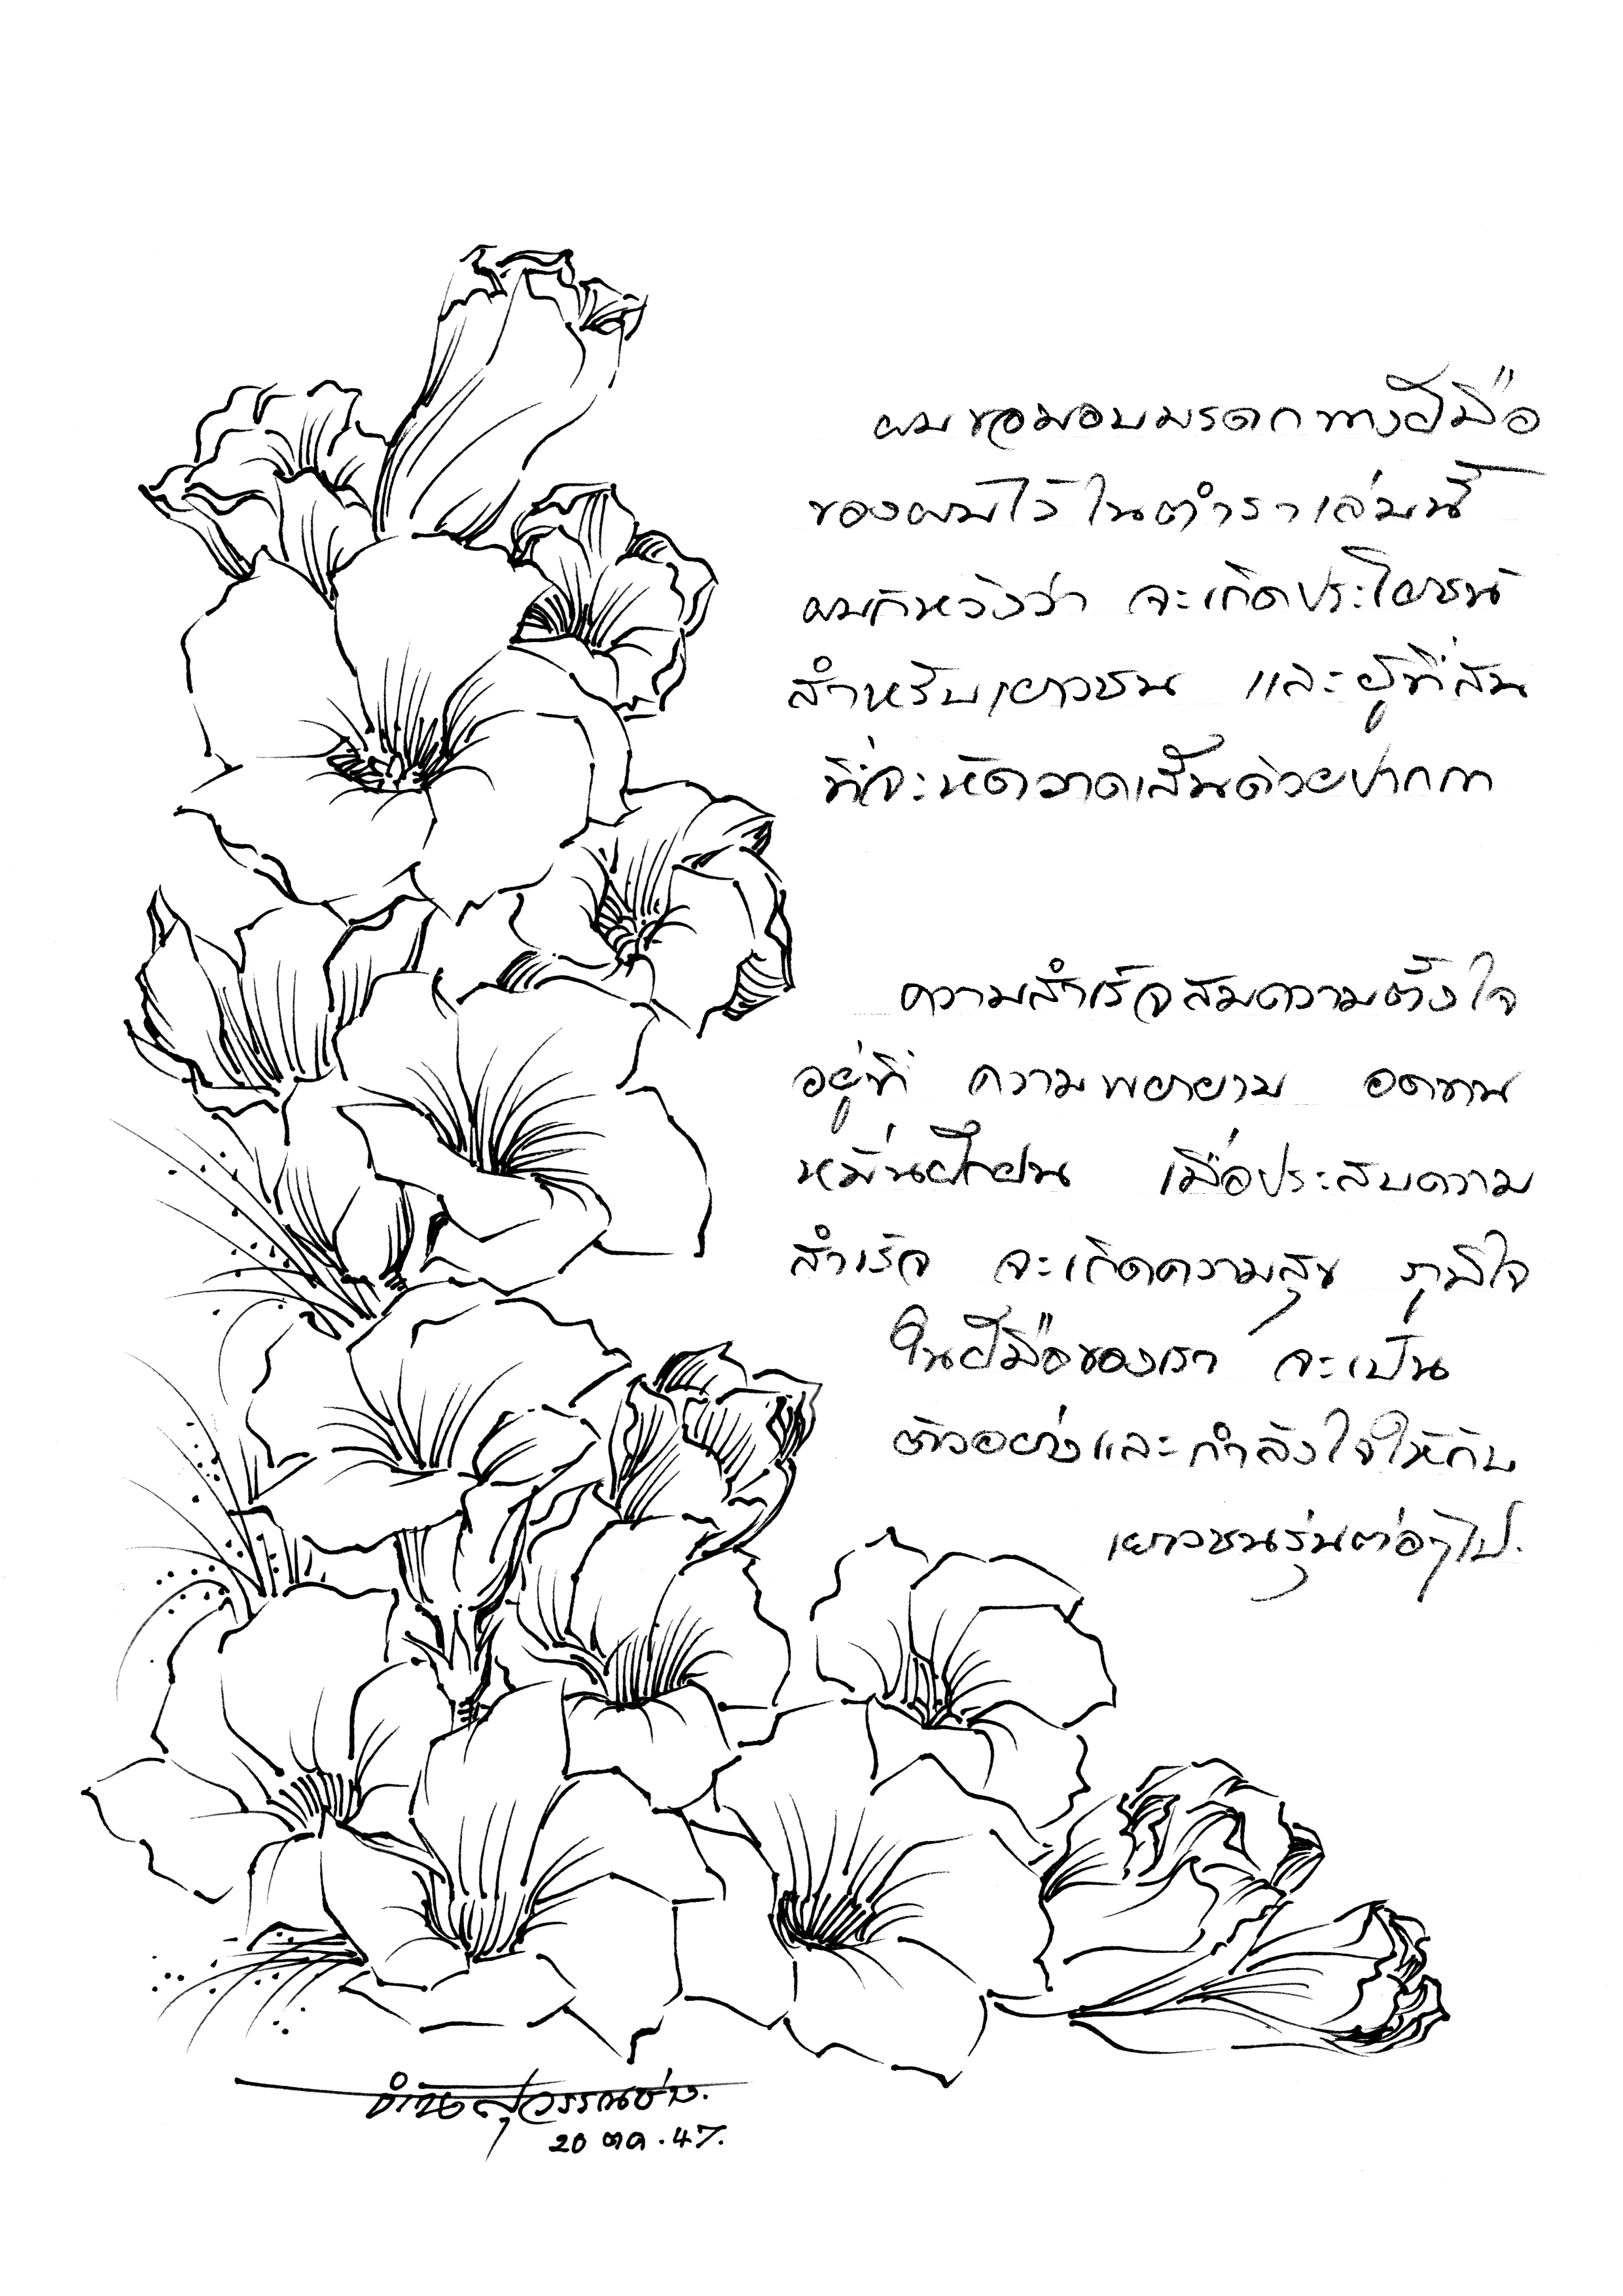 ผมขอมอบมรดกทางฝีมือ
ของผมไว้ในตำราเล่มนี้
ผมก็หวังว่า จะเกิดประโยชน์
สำหรับเยาวชน และผู้ที่สน
ที่จะหัดวาดเส้นด้วยปากกา
ความสำเร็จสมความตั้งใจ
อยู่ที่ ความพยายาม อดทน
หมั่นฝึกฝน เมื่อประสบความ
สำเร็จ จะเกิดความสุข ภูมิใจ
ในฝีมือของเรา จะเป็น
ตัวอย่างและกำลังใจให้กับ
เยาวชนรุ่นต่อๆไป.
สุวรรณช่าง.
20 ตค. 47.